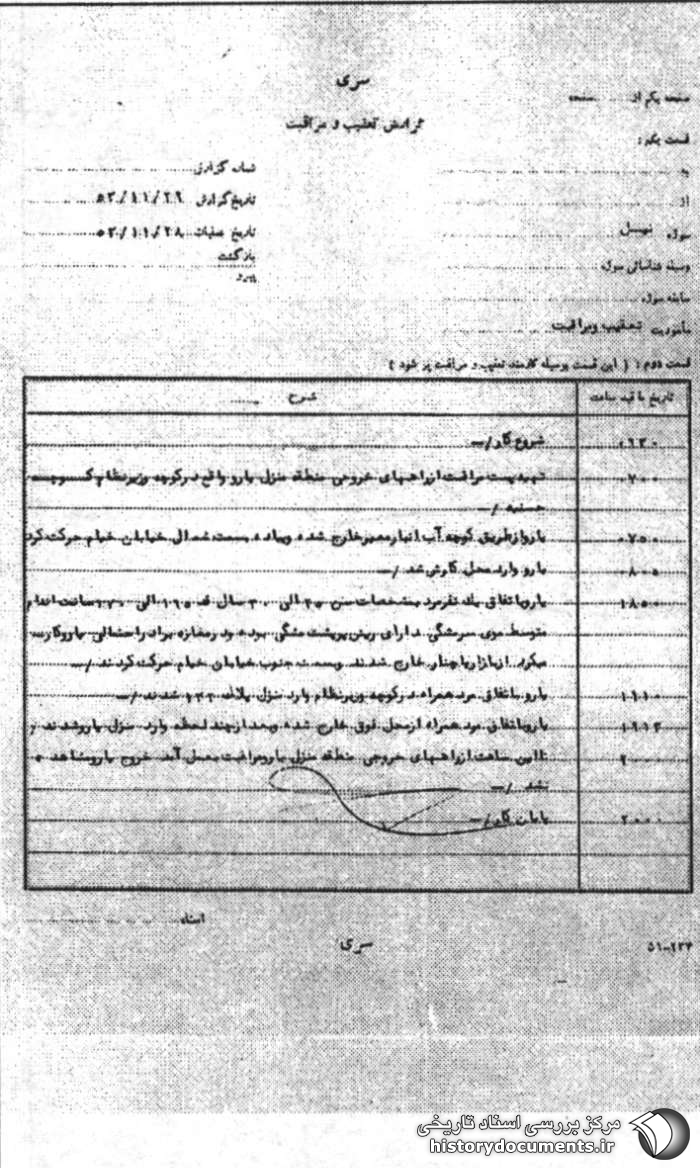 سری
گزارش تعقیب و مراقبت
صفحه یکم از ........ صفحه
قسمت یکم :
شماره گزارش
به
تاریخ گزارش ۵۳/۱۱/۲۹
از
تاریخ عملیات ۵۳/۱۱/۲۸
سوژه
بازگشت
پیرو
وسیله شناسائی سوژه
سابقه سوژه
مأموریت تعقیب ومراقبت
قسمت دوم : ( این قسمت بوسیله کارمند تعقیب و مراقبت پر شود )
تاریخ با قید ساعت
شرح
۰۶۳۰ شروع کار /ـ
۰۷۰۰ تهیه پست مراقبت ازراههای خروجی منطقه منزل یارو واقع درکوچه وزیرنظام کوچه
حسنیه /ـ
۰۷۵۰ یارو ازطریق کوچه آب انبارمعیرخارج شده وپیاده بسمت شمال خیابان خیام حرکت کرد
۰۸۰۵ یارو وارد محل کارش شد /ـ
۱۸۵۰ یاروباتفاق یک نفرمرد بمشخصات سن ۲۵ الی ۳۰ سال قد ۱۶۵ الی ۱۷۰ سانت اندام
متوسط موی سرمشگی دارای ریش پرپشت مشگی بوده ودرمغازه برادراحتمالی یاروکار
میکرد ازبازارپاچنار خارج شدند وبسمت جنوب خیابان خیام حرکت کردند /ـ
۱۹۱۰ یارو باتفاق مرد همراه درکوچه وزیرنظام وارد منزل پلاک ۱۳۳ شدند /ـ
۱۹۱۳ یاروباتفاق مرد همراه ازمحل فوق خارج شده وبعدازچند لحظه وارد منزل یاروشدند و
۲۰۰۰ تااین ساعت ازراههای خروجی منطقه منزل یارومراقبت بعمل آمد خروج یارومشاهده
نشد /ـ
۲۰۰۰ پایان کار /ـ
امضاء
سری
۵۱-۲۳۴
مرکز بررسی اسناد تاریخی
historydocuments.ir